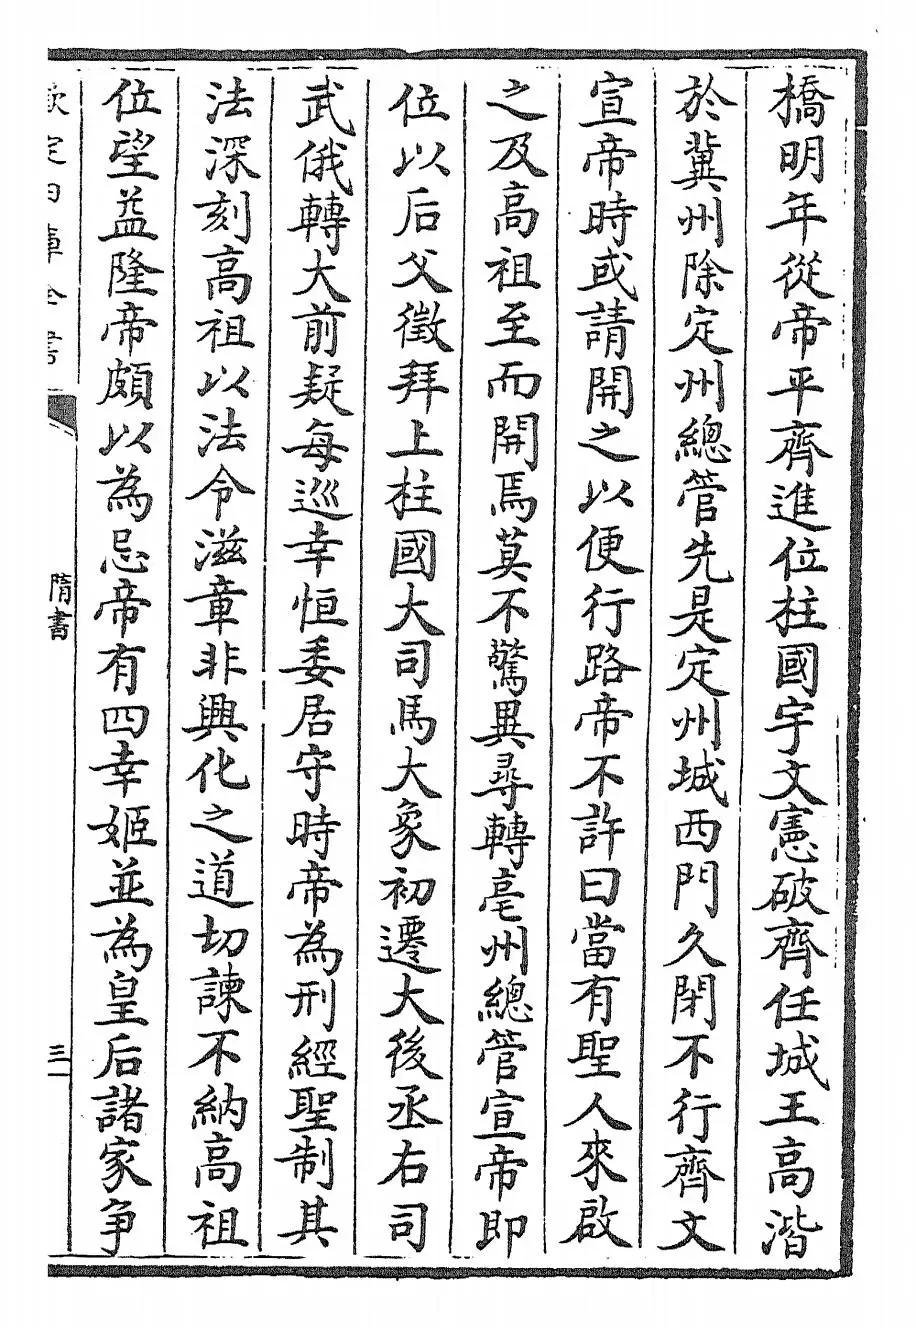 橋明年從帝平齊進位柱國宇文憲破齊任城王高湝
於冀州除定州總管先是定州城西門久閉不行齊文
宣帝時或請開之以便行路帝不許曰當有聖人來啟
之及高祖至而開焉莫不驚異尋轉亳州總管宣帝即
位以后父徵拜上柱國大司馬大象初遷大後丞右司
武俄轉大前疑每巡幸恒委居守時帝為刑經聖制其
法深刻高祖以法令滋章非興化之道切諫不納高祖
位望益隆帝頗以為忌帝有四幸姬並為皇后諸家爭
欽定四庫全書
隋書
三